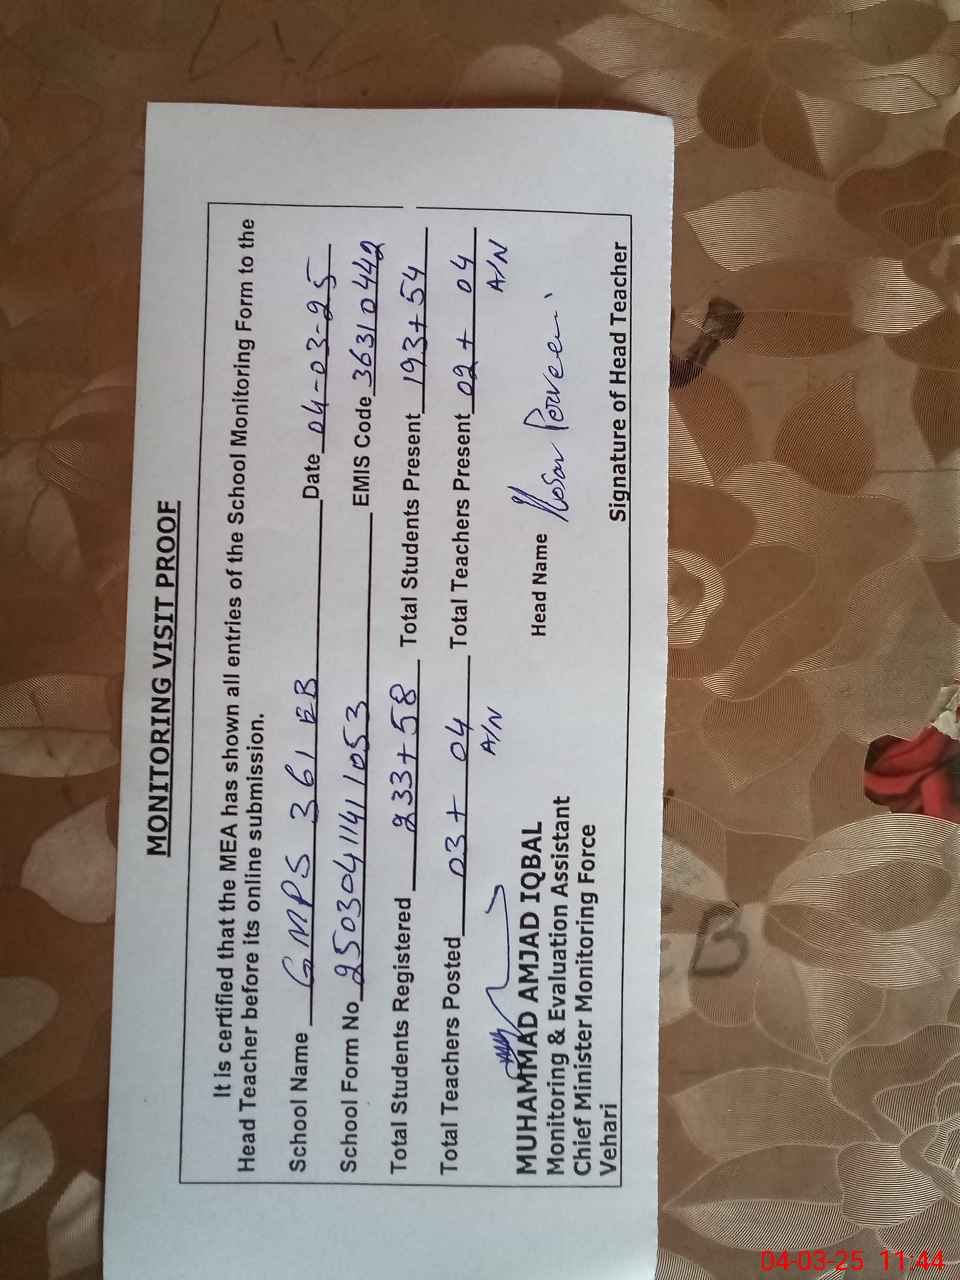 MONITORING VISIT PROOF
It is certified that the MEA has shown all entries of the School Monitoring Form to the
Head Teacher before its online submission.
School Name GMPS 361 EB Date 04-03-25
School Form No 25030411411053 EMIS Code 36310442
Total Students Registered 233+58 Total Students Present 193+54
Total Teachers Posted 03+ 04 Total Teachers Present 02+ 04
A/N A/N
MUHAMMAD AMJAD IQBAL Head Name Perveen
Monitoring & Evaluation Assistant
Chief Minister Monitoring Force
Vehari Signature of Head Teacher
EB
04-03-25 11:44